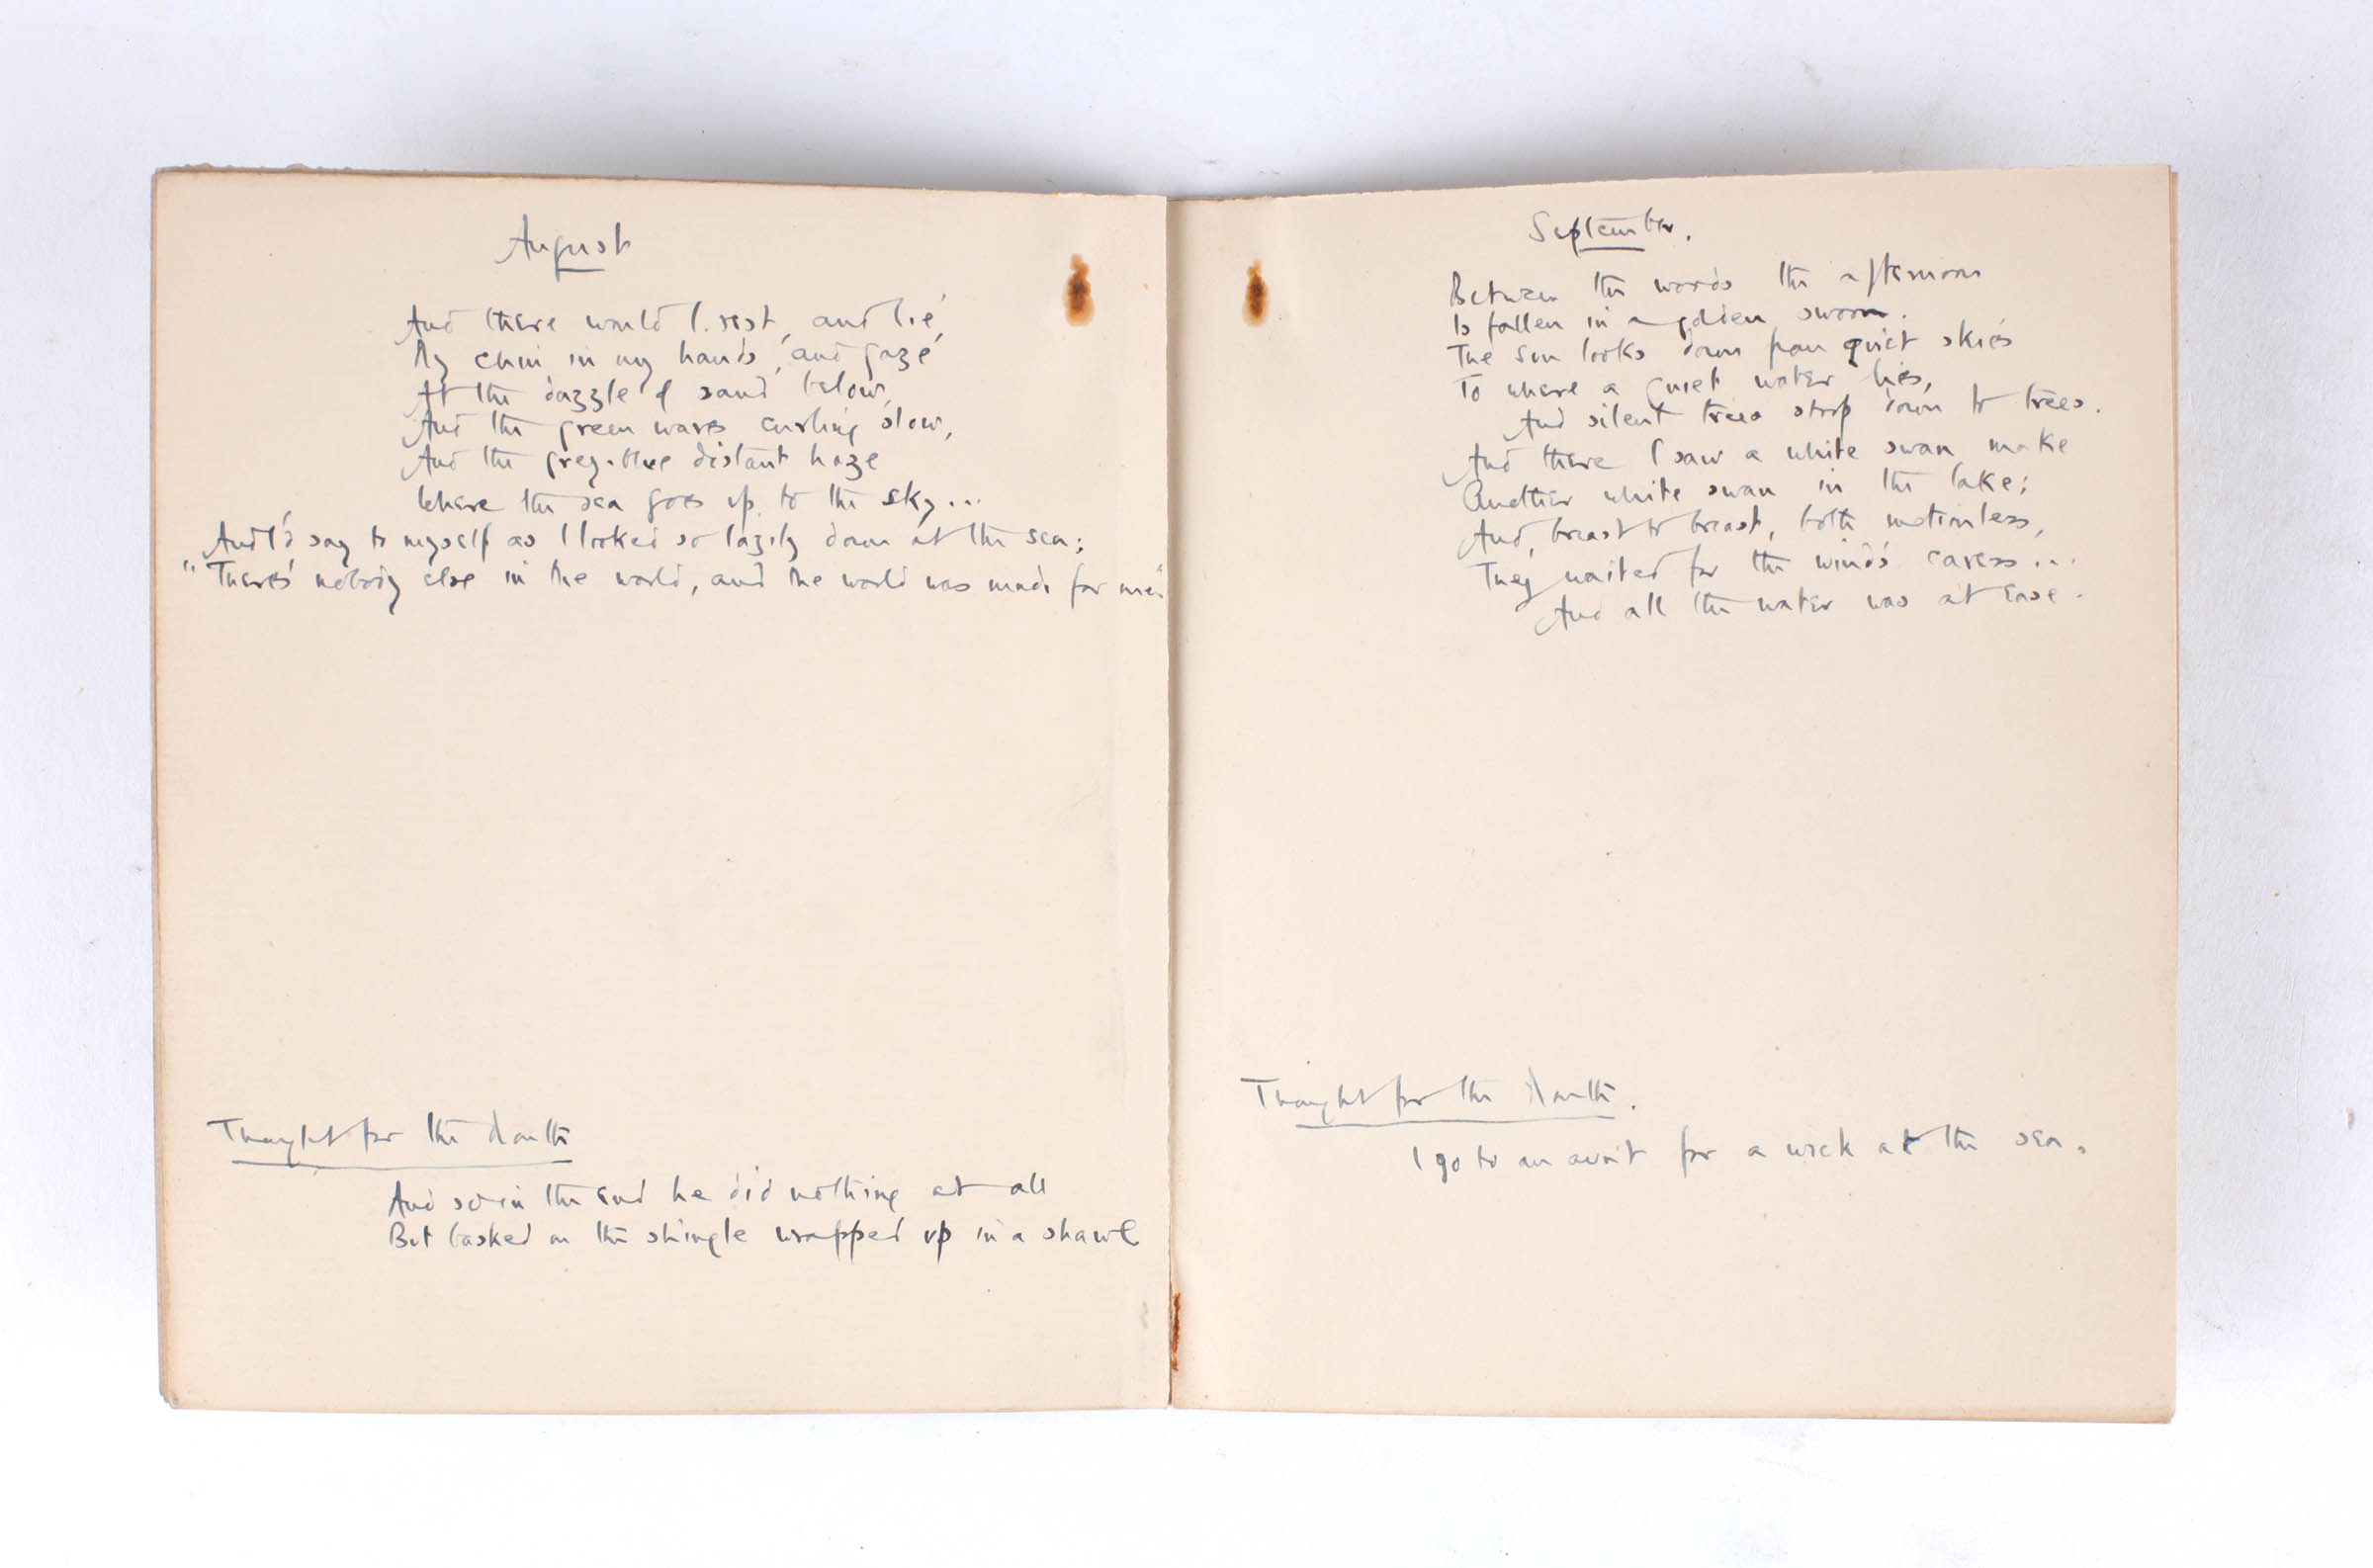 August
And there would I rest, and lie,
My chin in my hands, and gaze
At the dazzle of sand below,
And the green waves curling slow,
And the grey-blue distant haze
Where the sea goes up to the sky...
And I'd say to myself as I looked so lazily down at the sea:
"There's nobody else in the world, and the world was made for me."
Thought for the Month
And so in the end he did nothing at all
But basked on the shingle wrapped up in a shawl
September.
Between the woods the afternoon
Is fallen in a golden swoon.
The sun looks down from quiet skies
To where a quiet water lies,
And silent trees stoop down to trees.
And there I saw a white swan make
Another white swan in the lake;
And, breast to breast, both motionless,
They waited for the wind's caress...
And all the water was at ease.
Thought for the Month.
I go to an aunt for a week at the sea.